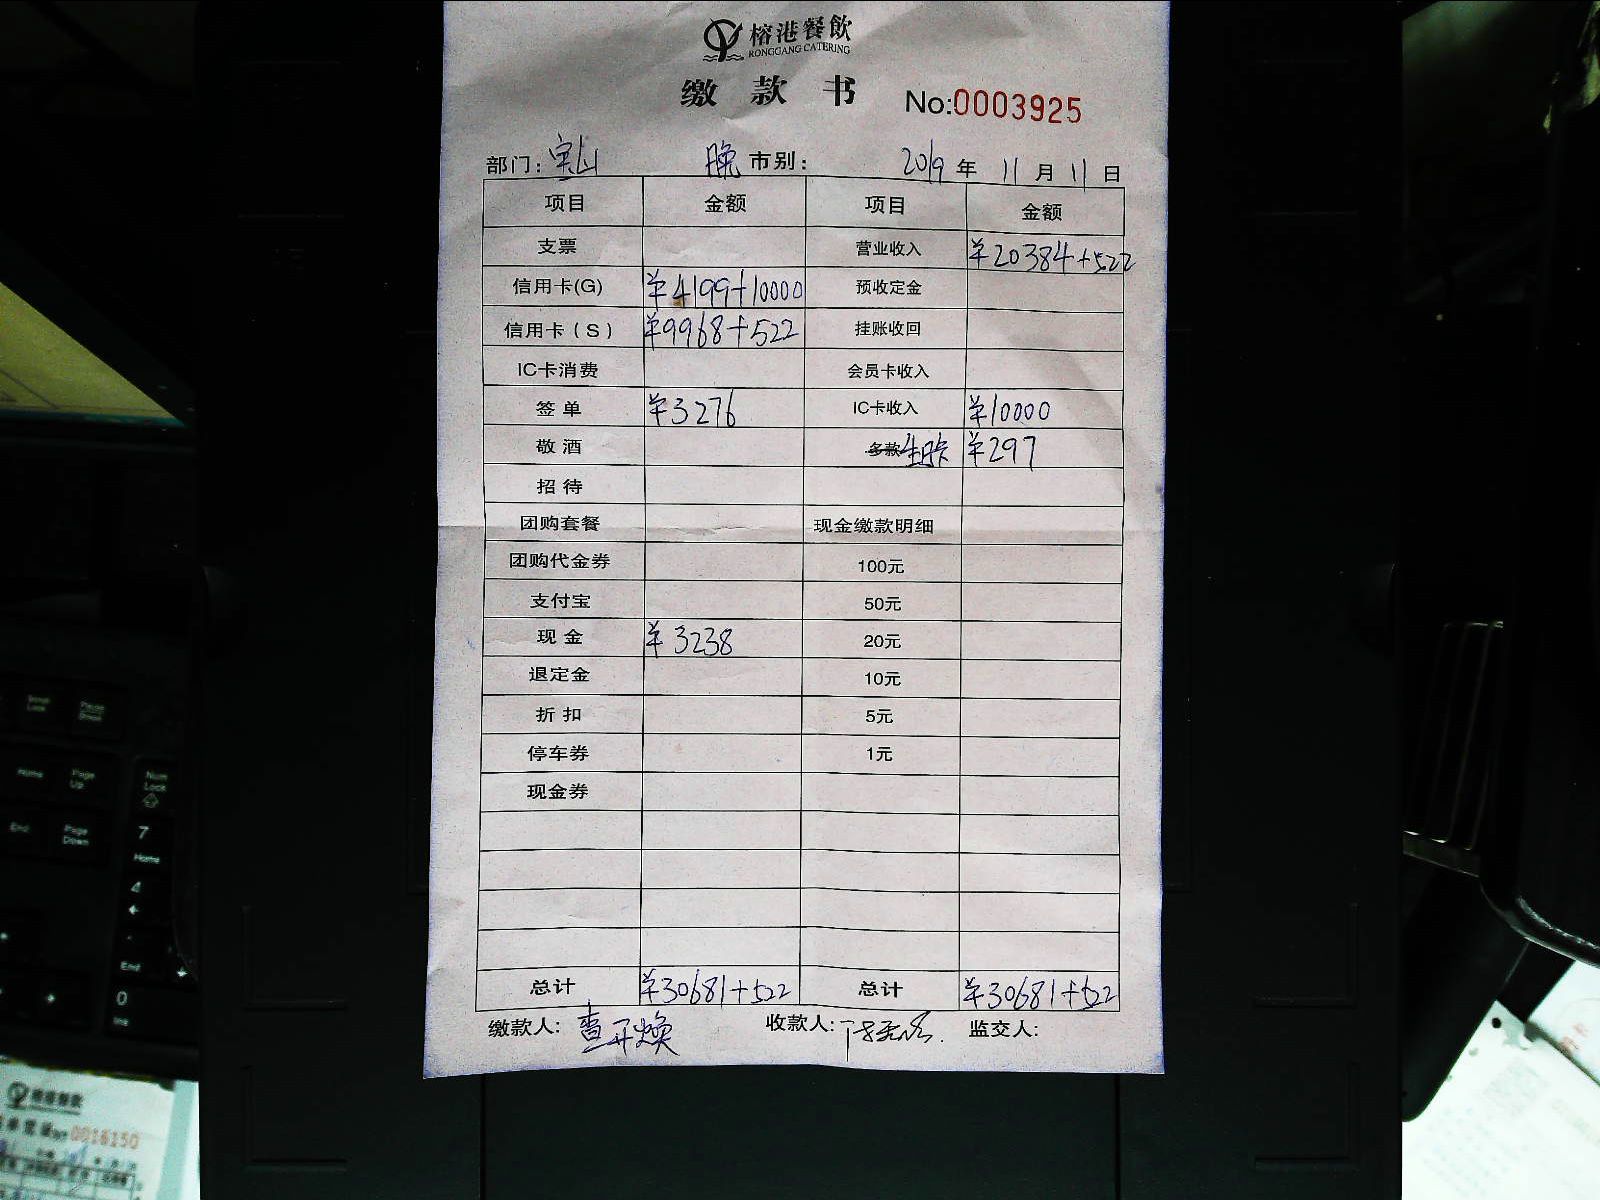 榕港餐飲
RONGGANG CATERING
缴款书 No:0003925
部门: 宝山 晚 市别: 2019 年 11 月 11 日
项目 金额 项目 金额
支票 营业收入 ¥20384+522
信用卡(G) ¥4199+10000 预收定金
信用卡(S) ¥9968+522 挂账收回
IC卡消费 会员卡收入
签单 ¥3276 IC卡收入 ¥10000
敬酒 多款 生日卡 ¥297
招待
团购套餐 现金缴款明细
团购代金券 100元
支付宝 50元
现金 ¥3238 20元
退定金 10元
折扣 5元
停车券 1元
现金券
总计 ¥30681+522 总计 ¥30681+522
缴款人: 查开焕 收款人: 监交人:
榕港餐飲
0016150
Scroll Lock Pause Break
Home Page Up Num Lock
End Page Down 7 Home
4
End
0 Ins